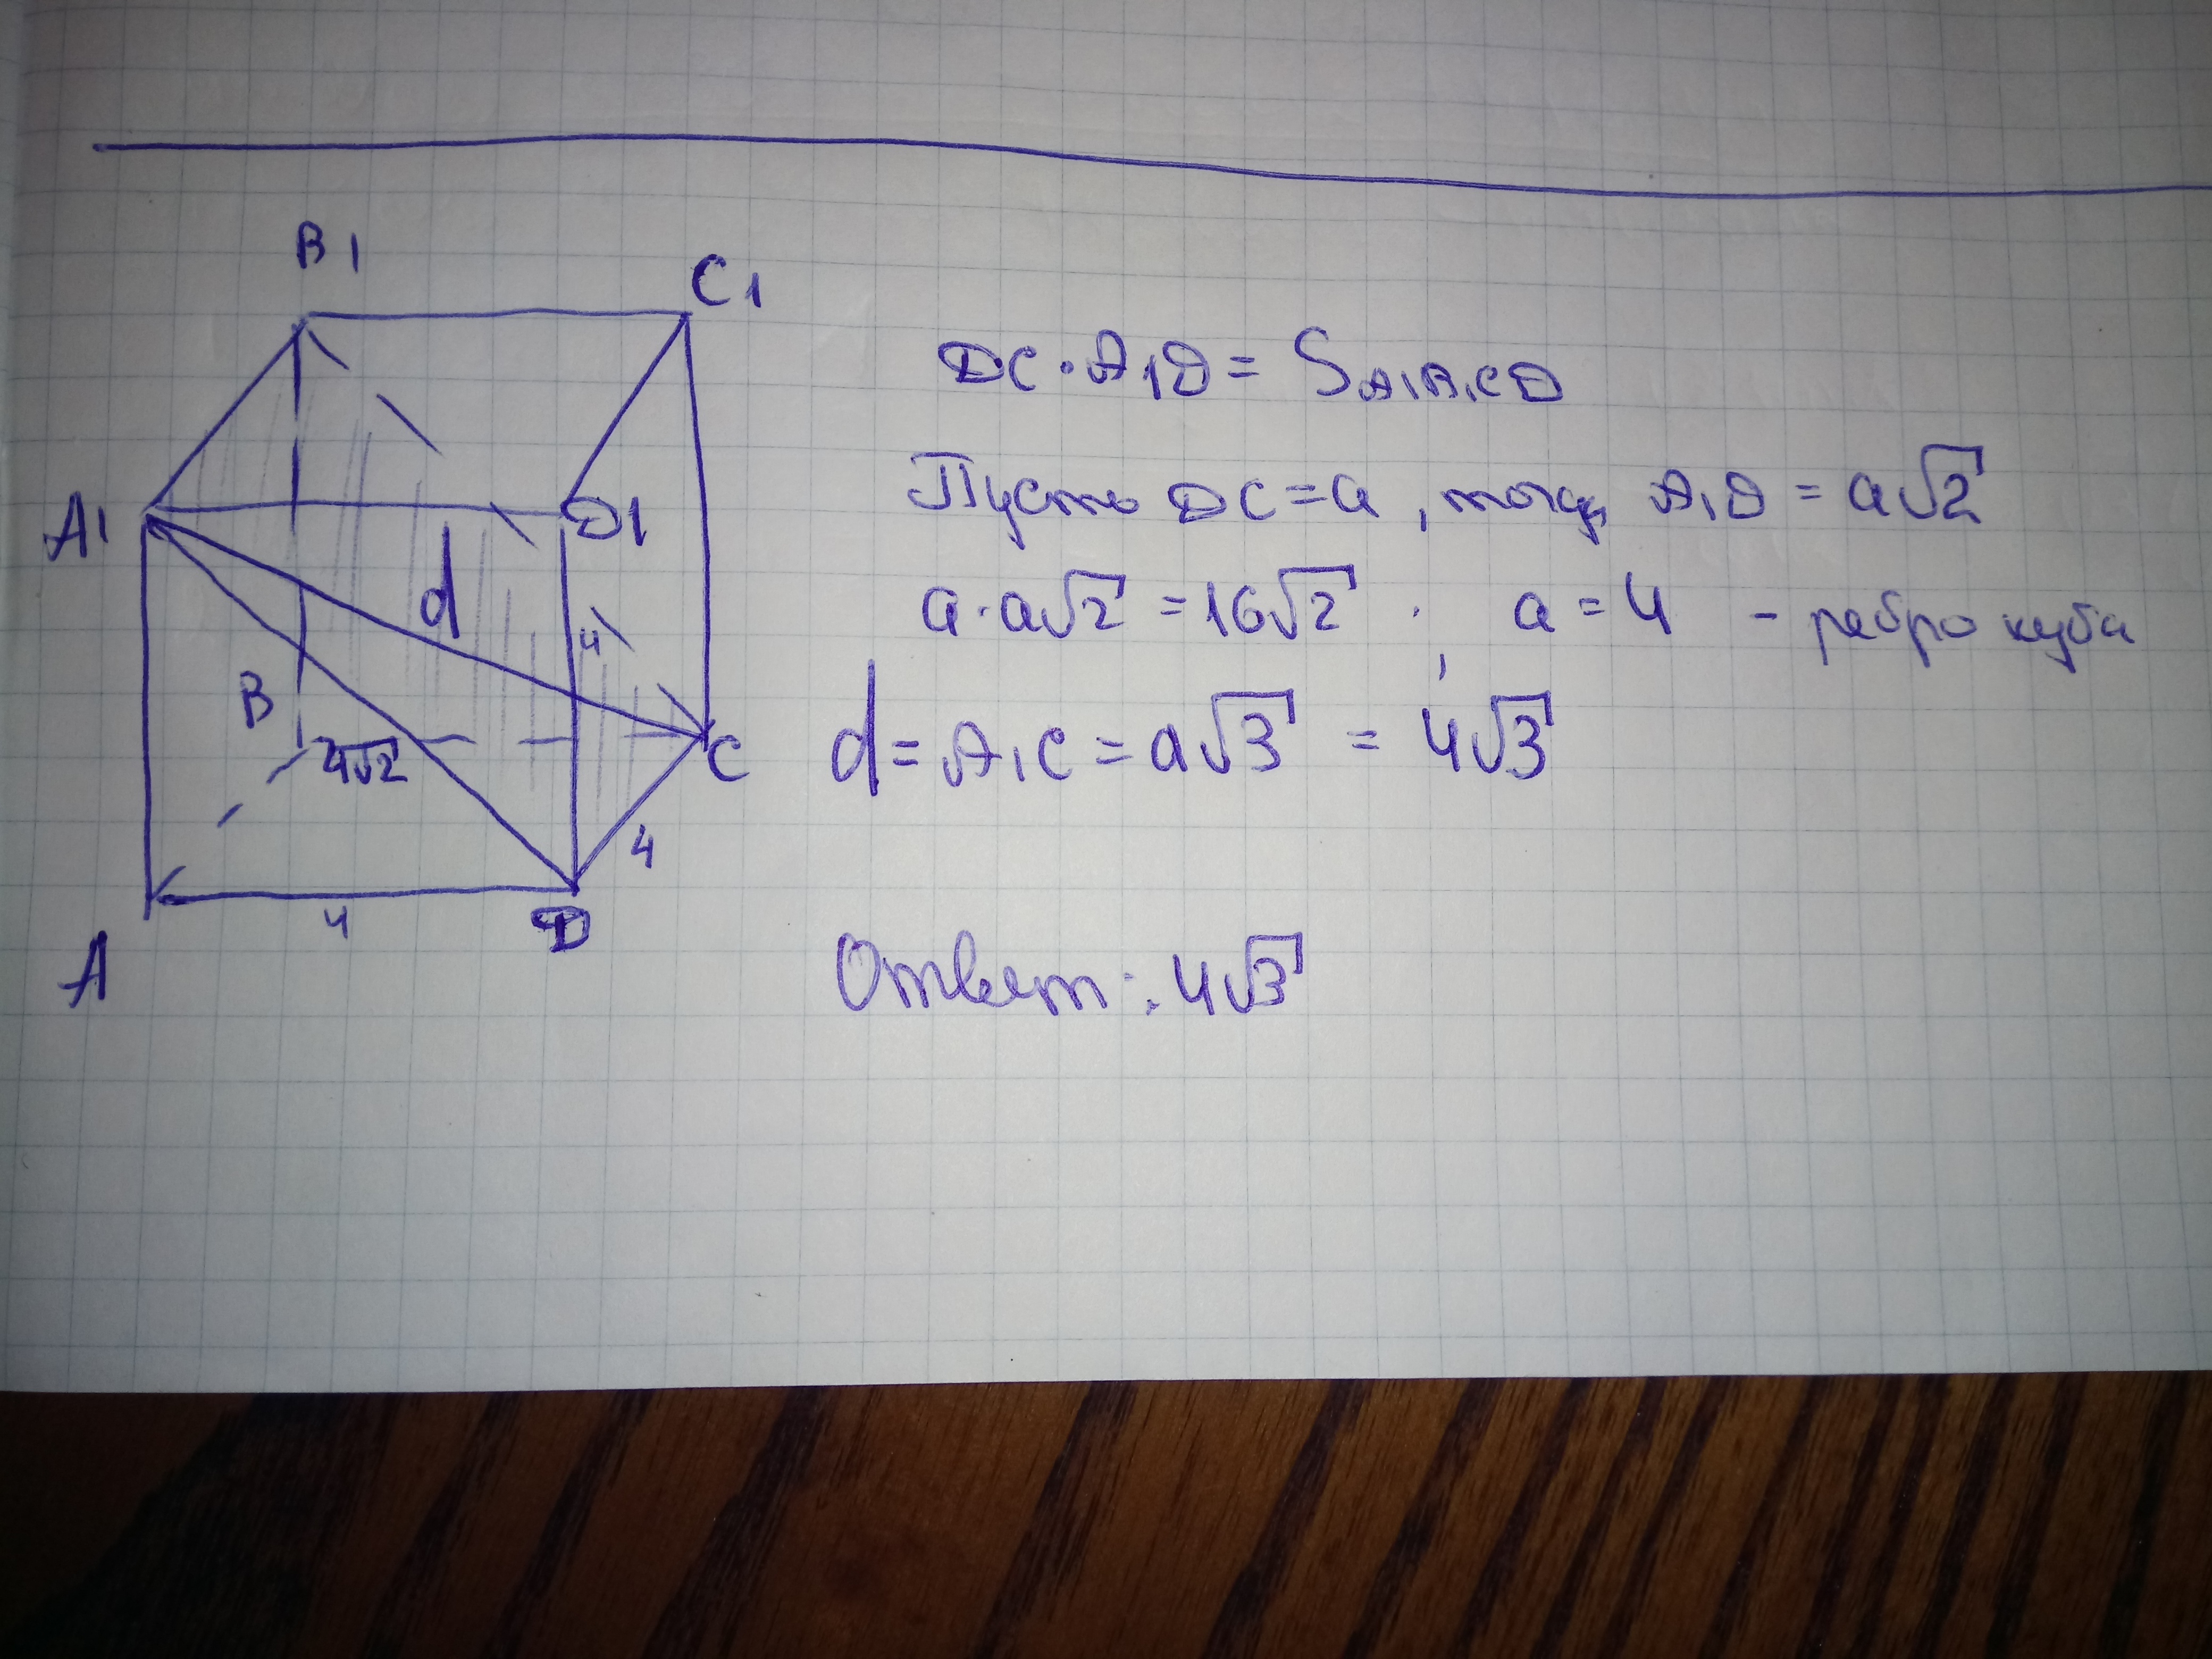 B1
C1
A1
D1
d
4
B
4√2
C
4
4
D
A
DC·A1D = SA1B1CD
Пусть DC=a, тогда A1D = a√2
a·a√2 = 16√2 ; a = 4 - ребро куба
d = A1C = a√3 = 4√3
Ответ: 4√3